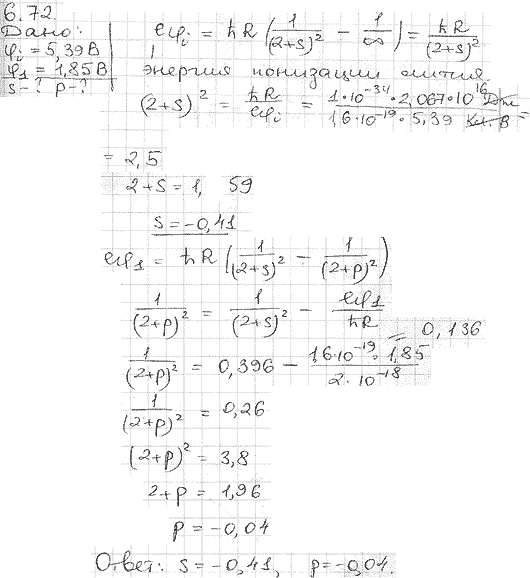 6.72.
Дано:
φi = 5,39 В
φ1 = 1,85 В
s - ? p - ?
eφi = ħR (1/(2+s)² − 1/∞) = ħR/(2+s)²
энергия ионизации лития.
(2+s)² = ħR/eφi = 1·10⁻³⁴·2,067·10¹⁶ Дж / 1,6·10⁻¹⁹·5,39 Кл·В =
= 2,5
2+s = 1, 59
s = −0,41
eφ1 = ħR (1/(2+s)² − 1/(2+p)²)
1/(2+p)² = 1/(2+s)² − eφ1/ħR
1/(2+p)² = 0,396 − 1,6·10⁻¹⁹·1,85 / 2·10⁻¹⁸ = 0,136
1/(2+p)² = 0,26
(2+p)² = 3,8
2+p = 1,96
p = −0,04
Ответ: s = −0,41, p = −0,04.